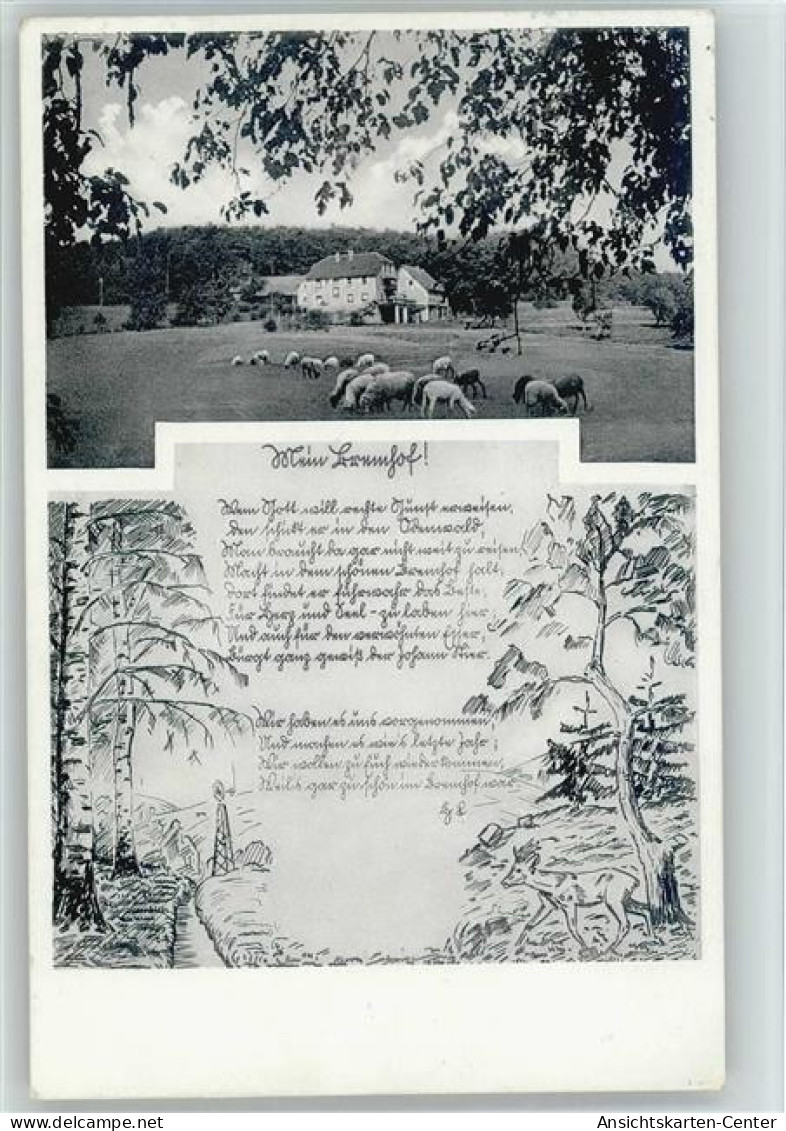 Mein Bremhof!
Wem Gott will rechte Gunst erweisen,
den schickt er in den Odenwald,
Man braucht da gar nicht weit zu reisen,
Macht in dem schönen Bremhof halt;
Dort findet er fürwahr das Beste,
Für Herz und Seel - zu laben hier;
Und auch für den verwöhnten Esser,
Bürgt ganz gewiß der Johann Stier.
Wir haben es uns vorgenommen,
Und machen es wie's letzte Jahr;
Wir wollen zu Euch wieder kommen,
Weil's gar zu schön im Bremhof war.
Ansichtskarten-Center